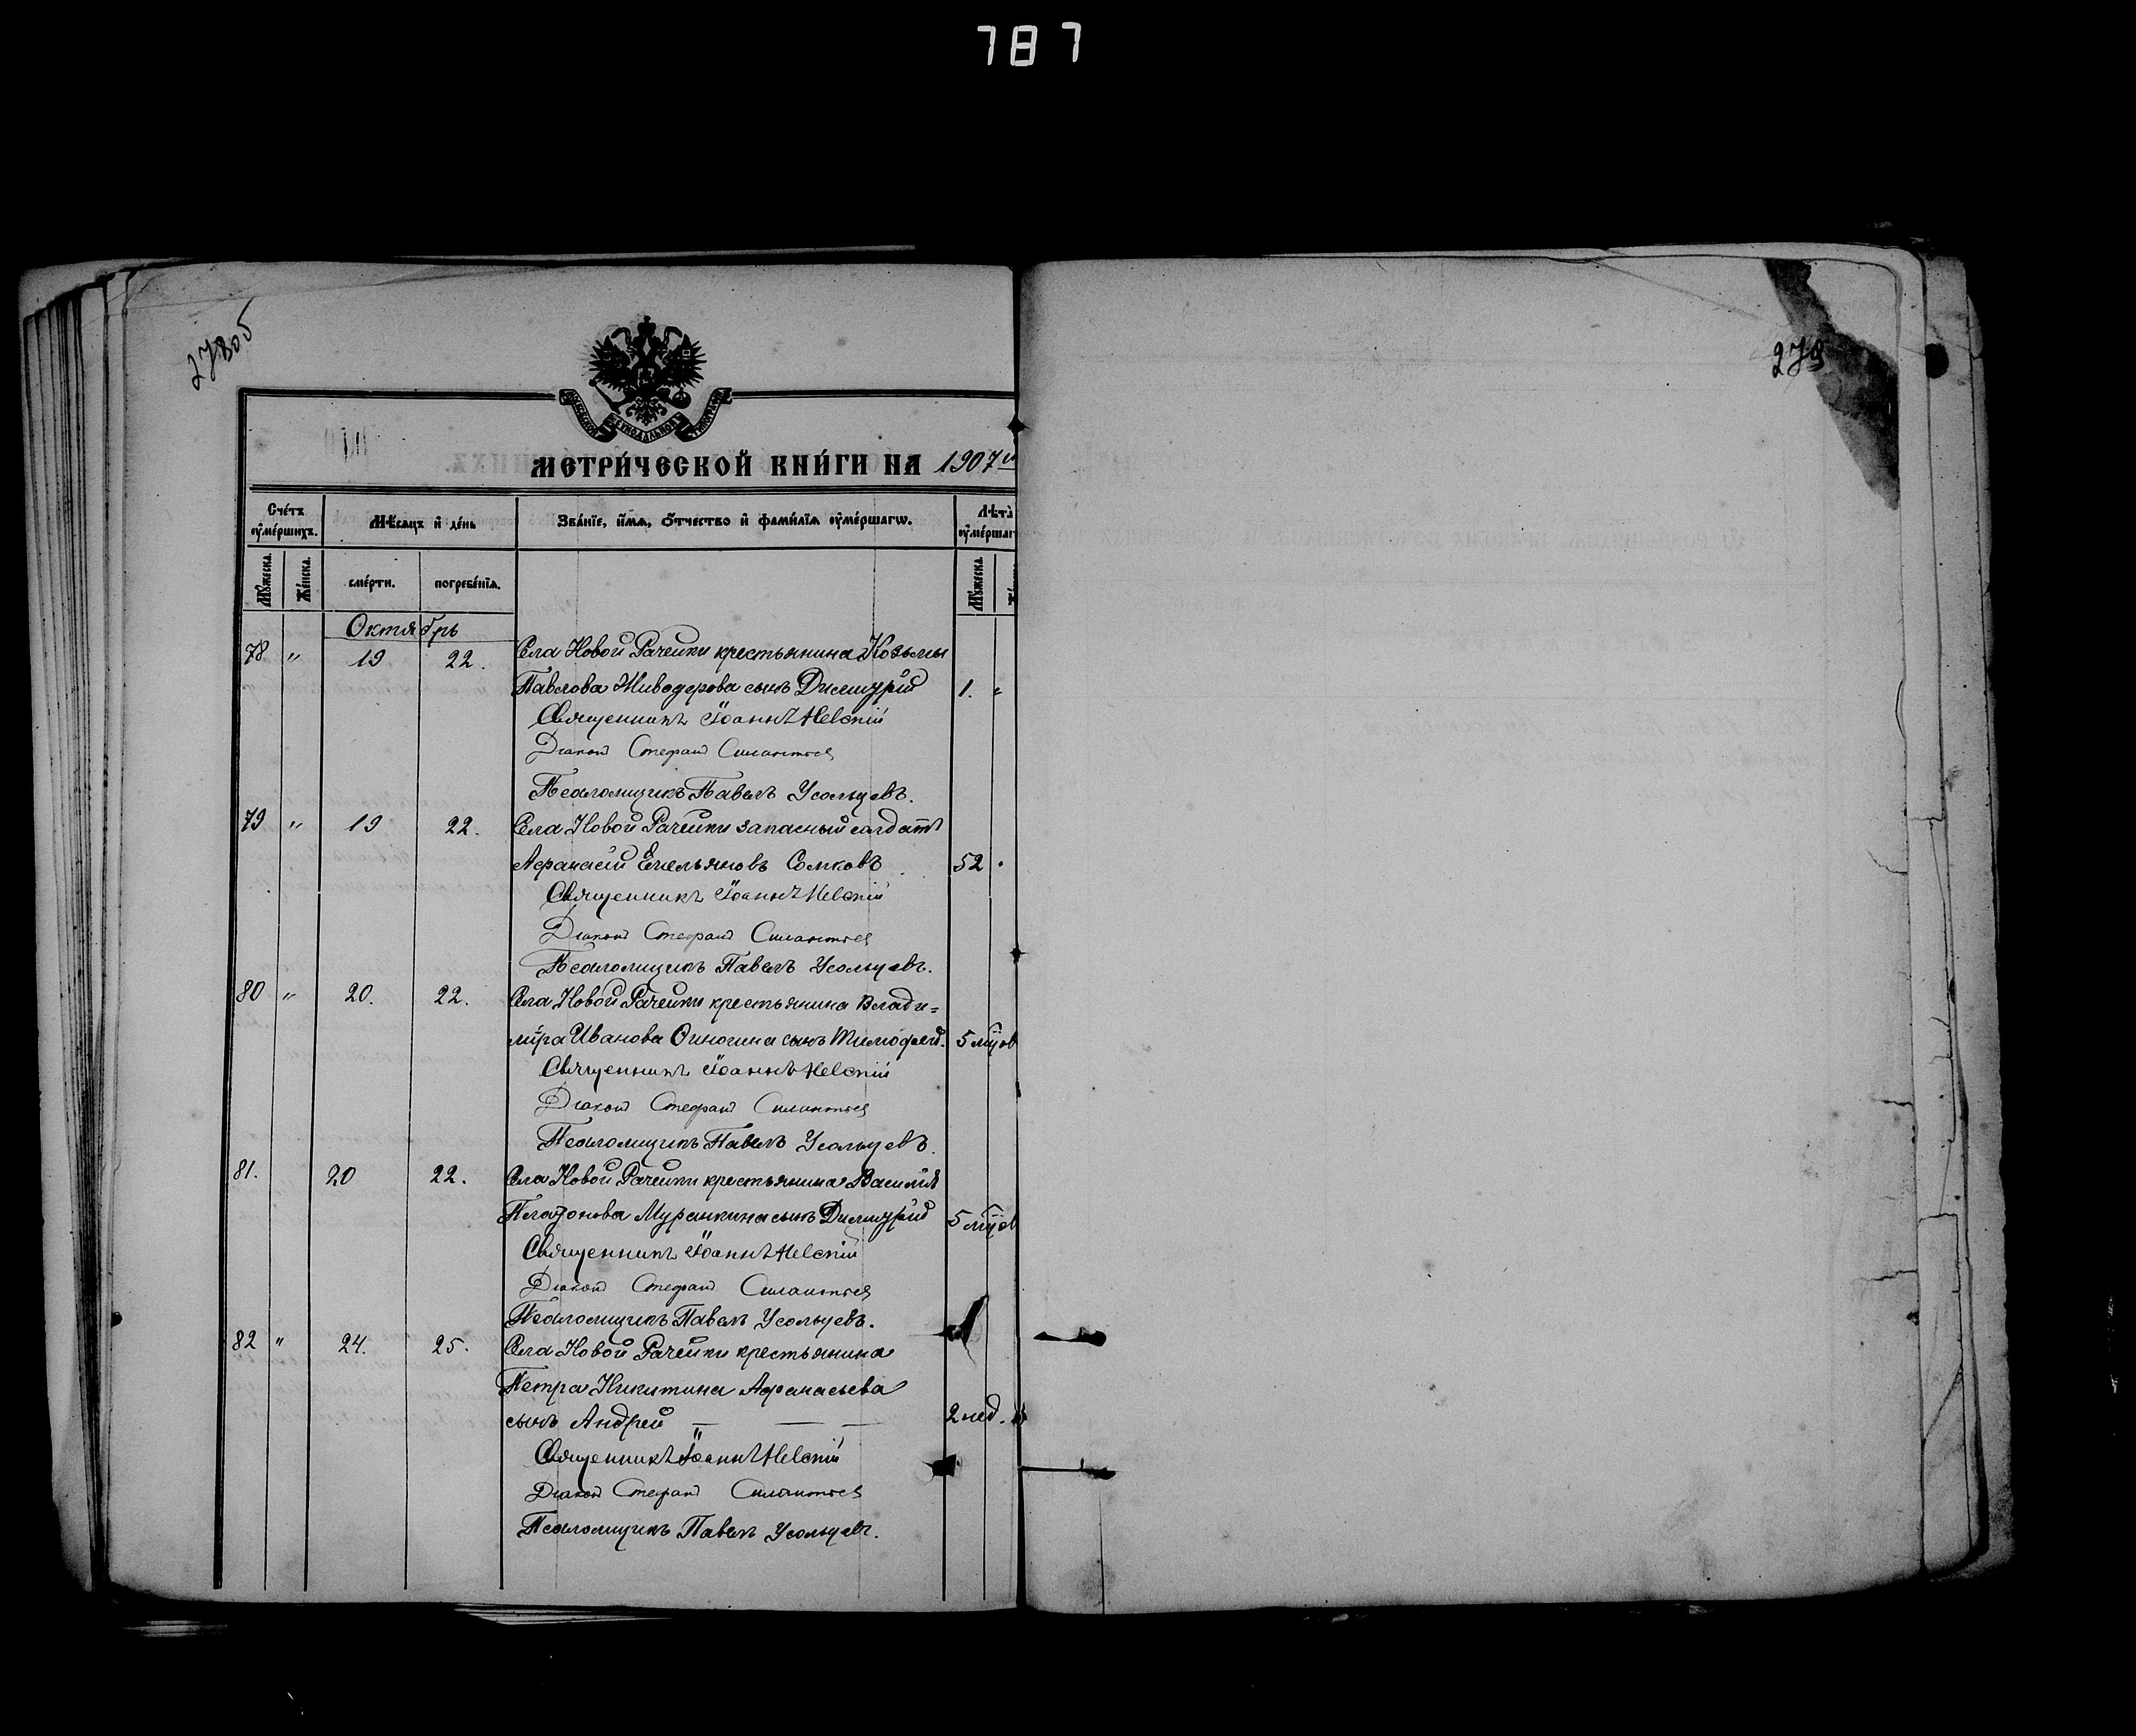 787
278об
279
МЕТРИ́ЧЕСКОЙ КНИ́ГИ НА 1907
Сче́тъ оу҆ме́ршихъ.
Мѣ́сяцъ и҆ де́нь
Зва́нїе, и҆́мѧ, ѻ҆́тчество и҆ фами́лїѧ оу҆ме́ршагѡ.
Лѣ́та
Мꙋ́жеска.
Же́нска.
сме́рти.
погребе́нїѧ.
Мꙋ́жеска.
Октябрь
78 " 19 22. Села Новой Рачейки крестьянина Козьмы
Павлова Живодерова сынъ Димитрій 1. "
Священникъ Іоаннъ
Діаконъ Стефанъ Силантьев
Псаломщикъ Павелъ Усольцевъ.
79 " 19 22. Села Новой Рачейки запасный салдатъ
Афанасій Емельяновъ Сомковъ 52
Священникъ Іоаннъ
Діаконъ Стефанъ Силантьев
Псаломщикъ Павелъ Усольцевъ.
80 " 20. 22. Села Новой Рачейки крестьянина Влади=
міра Иванова сынъ Тимофей. 5 мцов
Священникъ Іоаннъ
Діаконъ Стефанъ Силантьев
Псаломщикъ Павелъ Усольцевъ.
81. 20 22. Села Новой Рачейки крестьянина Василія
Платонова Муранкина сынъ Димитрій 5 мцов
Священникъ Іоаннъ
Діаконъ Стефанъ Силантьев
Псаломщикъ Павелъ Усольцевъ.
82 " 24. 25. Села Новой Рачейки крестьянина
Петра Никитина Афанасьева
сынъ Андрей — — — 2 нед.
Священникъ Іоаннъ
Діаконъ Стефанъ Силантьев
Псаломщикъ Павелъ Усольцевъ.